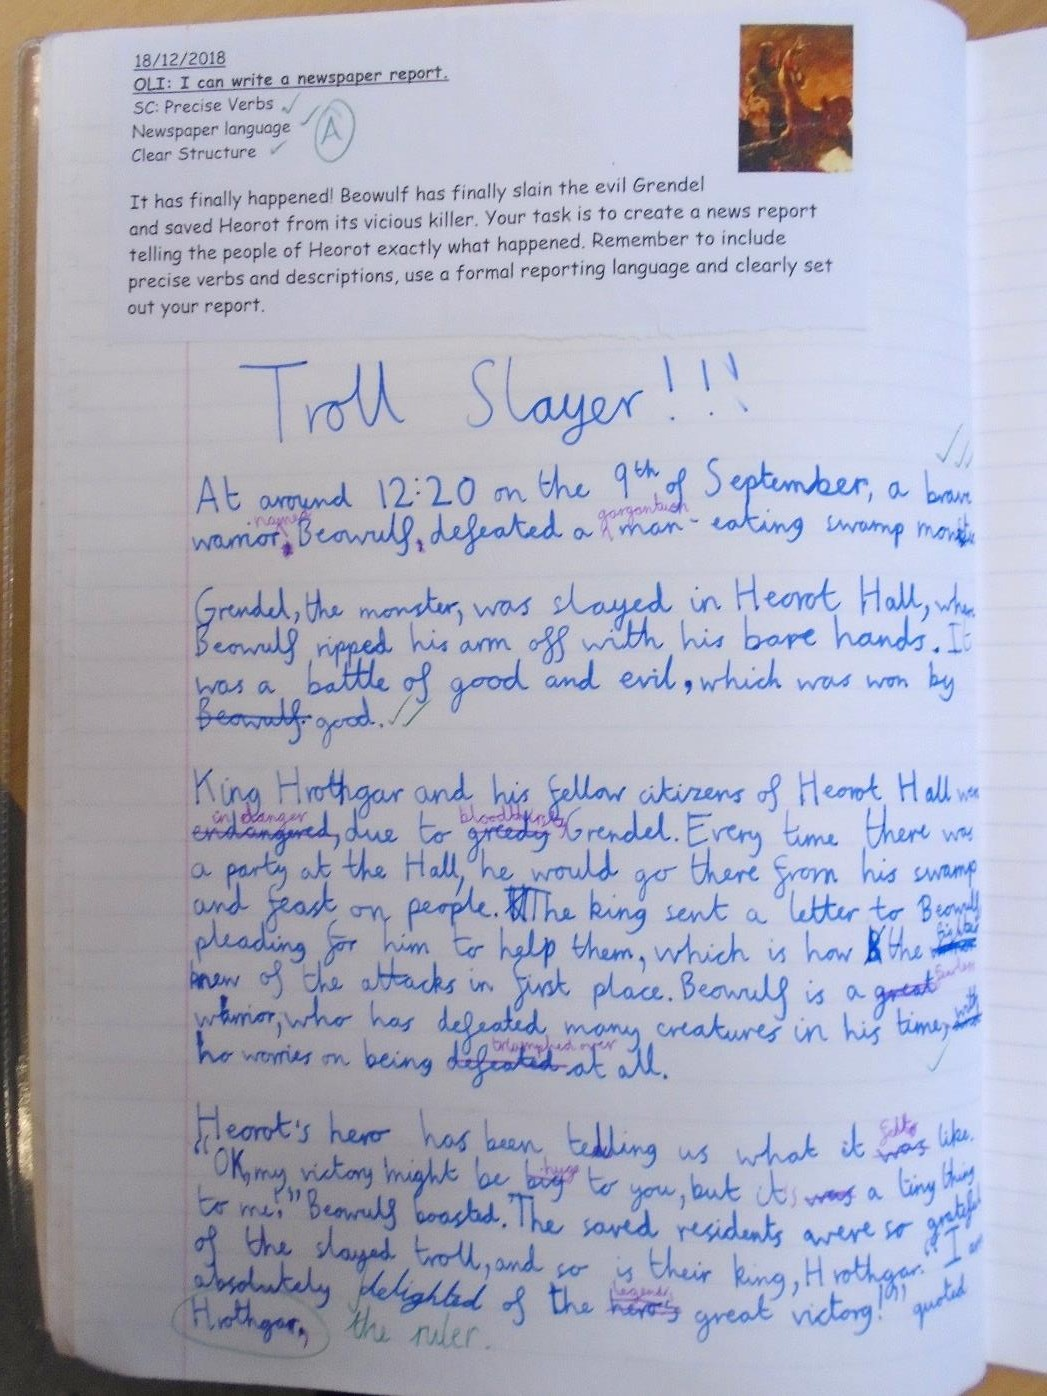 18/12/2018
OLI: I can write a newspaper report.
SC: Precise Verbs
Newspaper language
A
Clear Structure
It has finally happened! Beowulf has finally slain the evil Grendel
and saved Heorot from its vicious killer. Your task is to create a news report
telling the people of Heorot exactly what happened. Remember to include
precise verbs and descriptions, use a formal reporting language and clearly set
out your report.
Troll Slayer!!!
At around 12:20 on the 9th of September, a brave
named gargantuan
warrior, Beowulf, defeated a man-eating swamp
Grendel, the monster, was slayed in Heorot Hall,
Beowulf ripped his arm off with his bare hands. It
was a battle of good and evil, which was won by
Beowulf. good.
King Hrothgar and his fellow citizens of Heorot Hall
in danger bloodthirsty
endangered, due to greedy Grendel. Every time there was
a party at the Hall, he would go there from his swamp
and feast on people. The king sent a letter to Beowulf
pleading for him to help them, which is how the fighter
knew of the attacks in first place. Beowulf is a great
warrior, who has defeated many creatures in his time, with
triumphed over
no worries on being defeated at all.
Heorot's hero has been telling us what it was like.
huge
"OK, my victory might be big to you, but it's was a tiny thing
to me!" Beowulf boasted. The saved residents were so grateful
of the slayed troll, and so is their king, Hrothgar. "I am
absolutely delighted of the hero's great victory!" quoted
Hrothgar, the ruler.